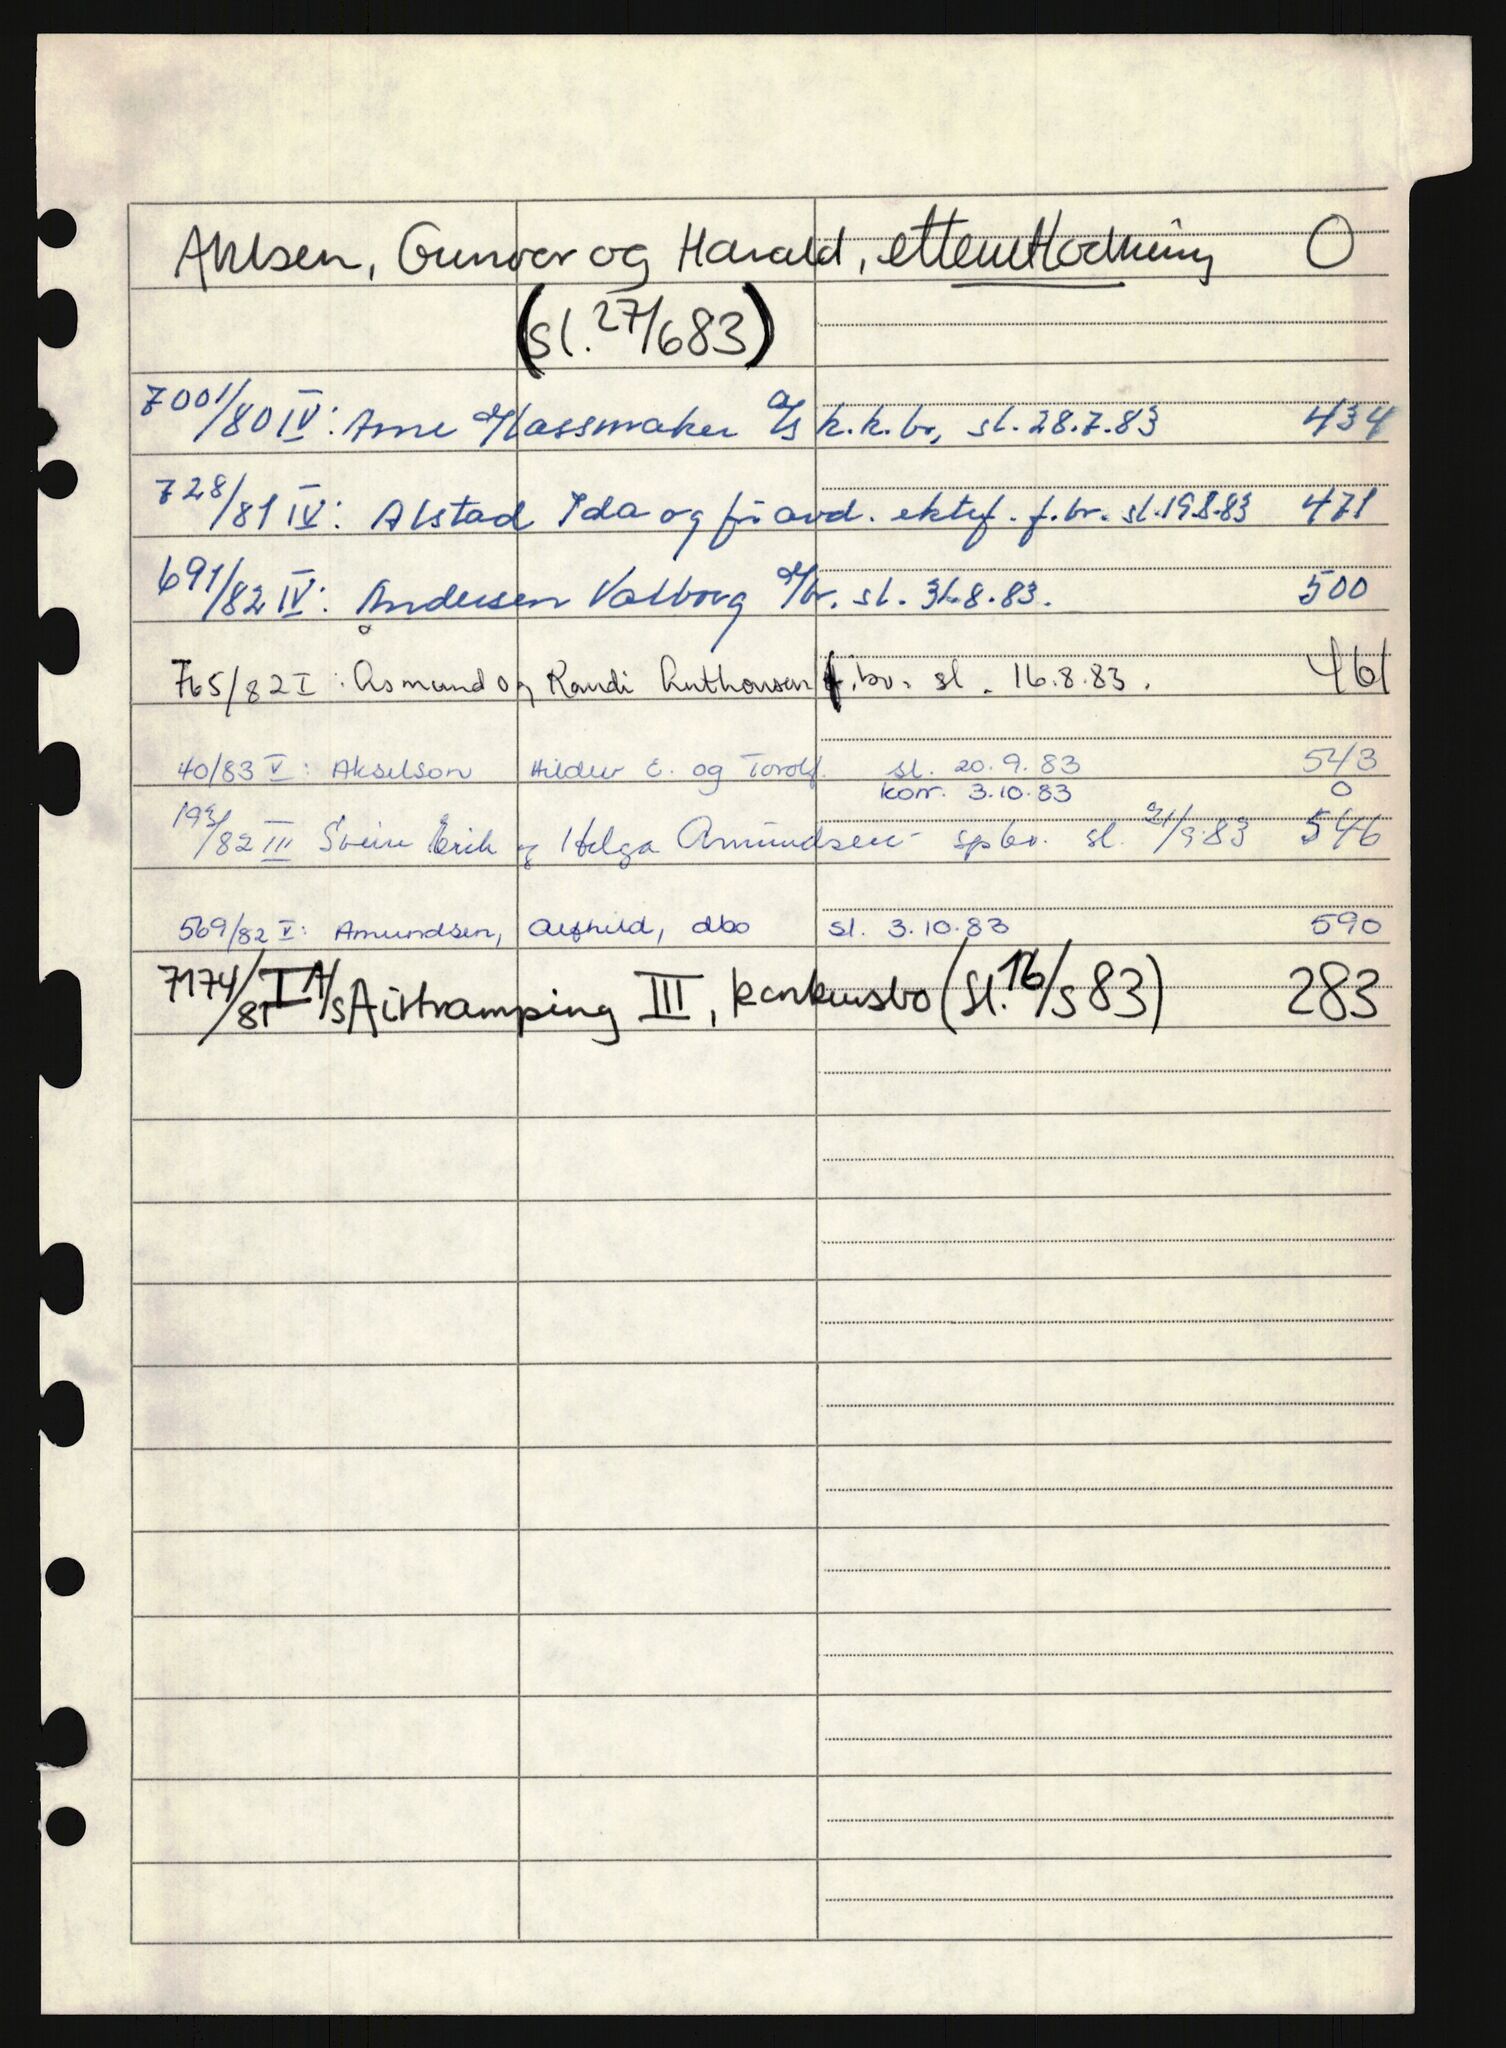 Ahlsen, Gunvor og Harald, etterutlodning 0
(sl. 27/6 83)
7001/80 IV: Arne Klassmaker A/S k.k.bo, sl. 28.7.83 434
728/81 IV: Alstad Ida og før avd. ektef. f.bo. sl. 19.8.83 471
691/82 IV: Andersen Valborg d/bo. sl. 31.8.83. 500
765/82 I: Åsmund og Randi Anthonsen f.bo. sl. 16.8.83. 461
40/83 V: Akselson Hildur E. og Torolf. sl. 20.9.83 543
korr. 3.10.83 0
193/82 III Svein Erik og Helga Amundsen spbo. sl. 21/9.83 546
569/82 V: Amundsen, Alfhild, dbo sl. 3.10.83 590
7174/81 I A/S Airtramping III, konkursbo (sl. 16/5 83) 283